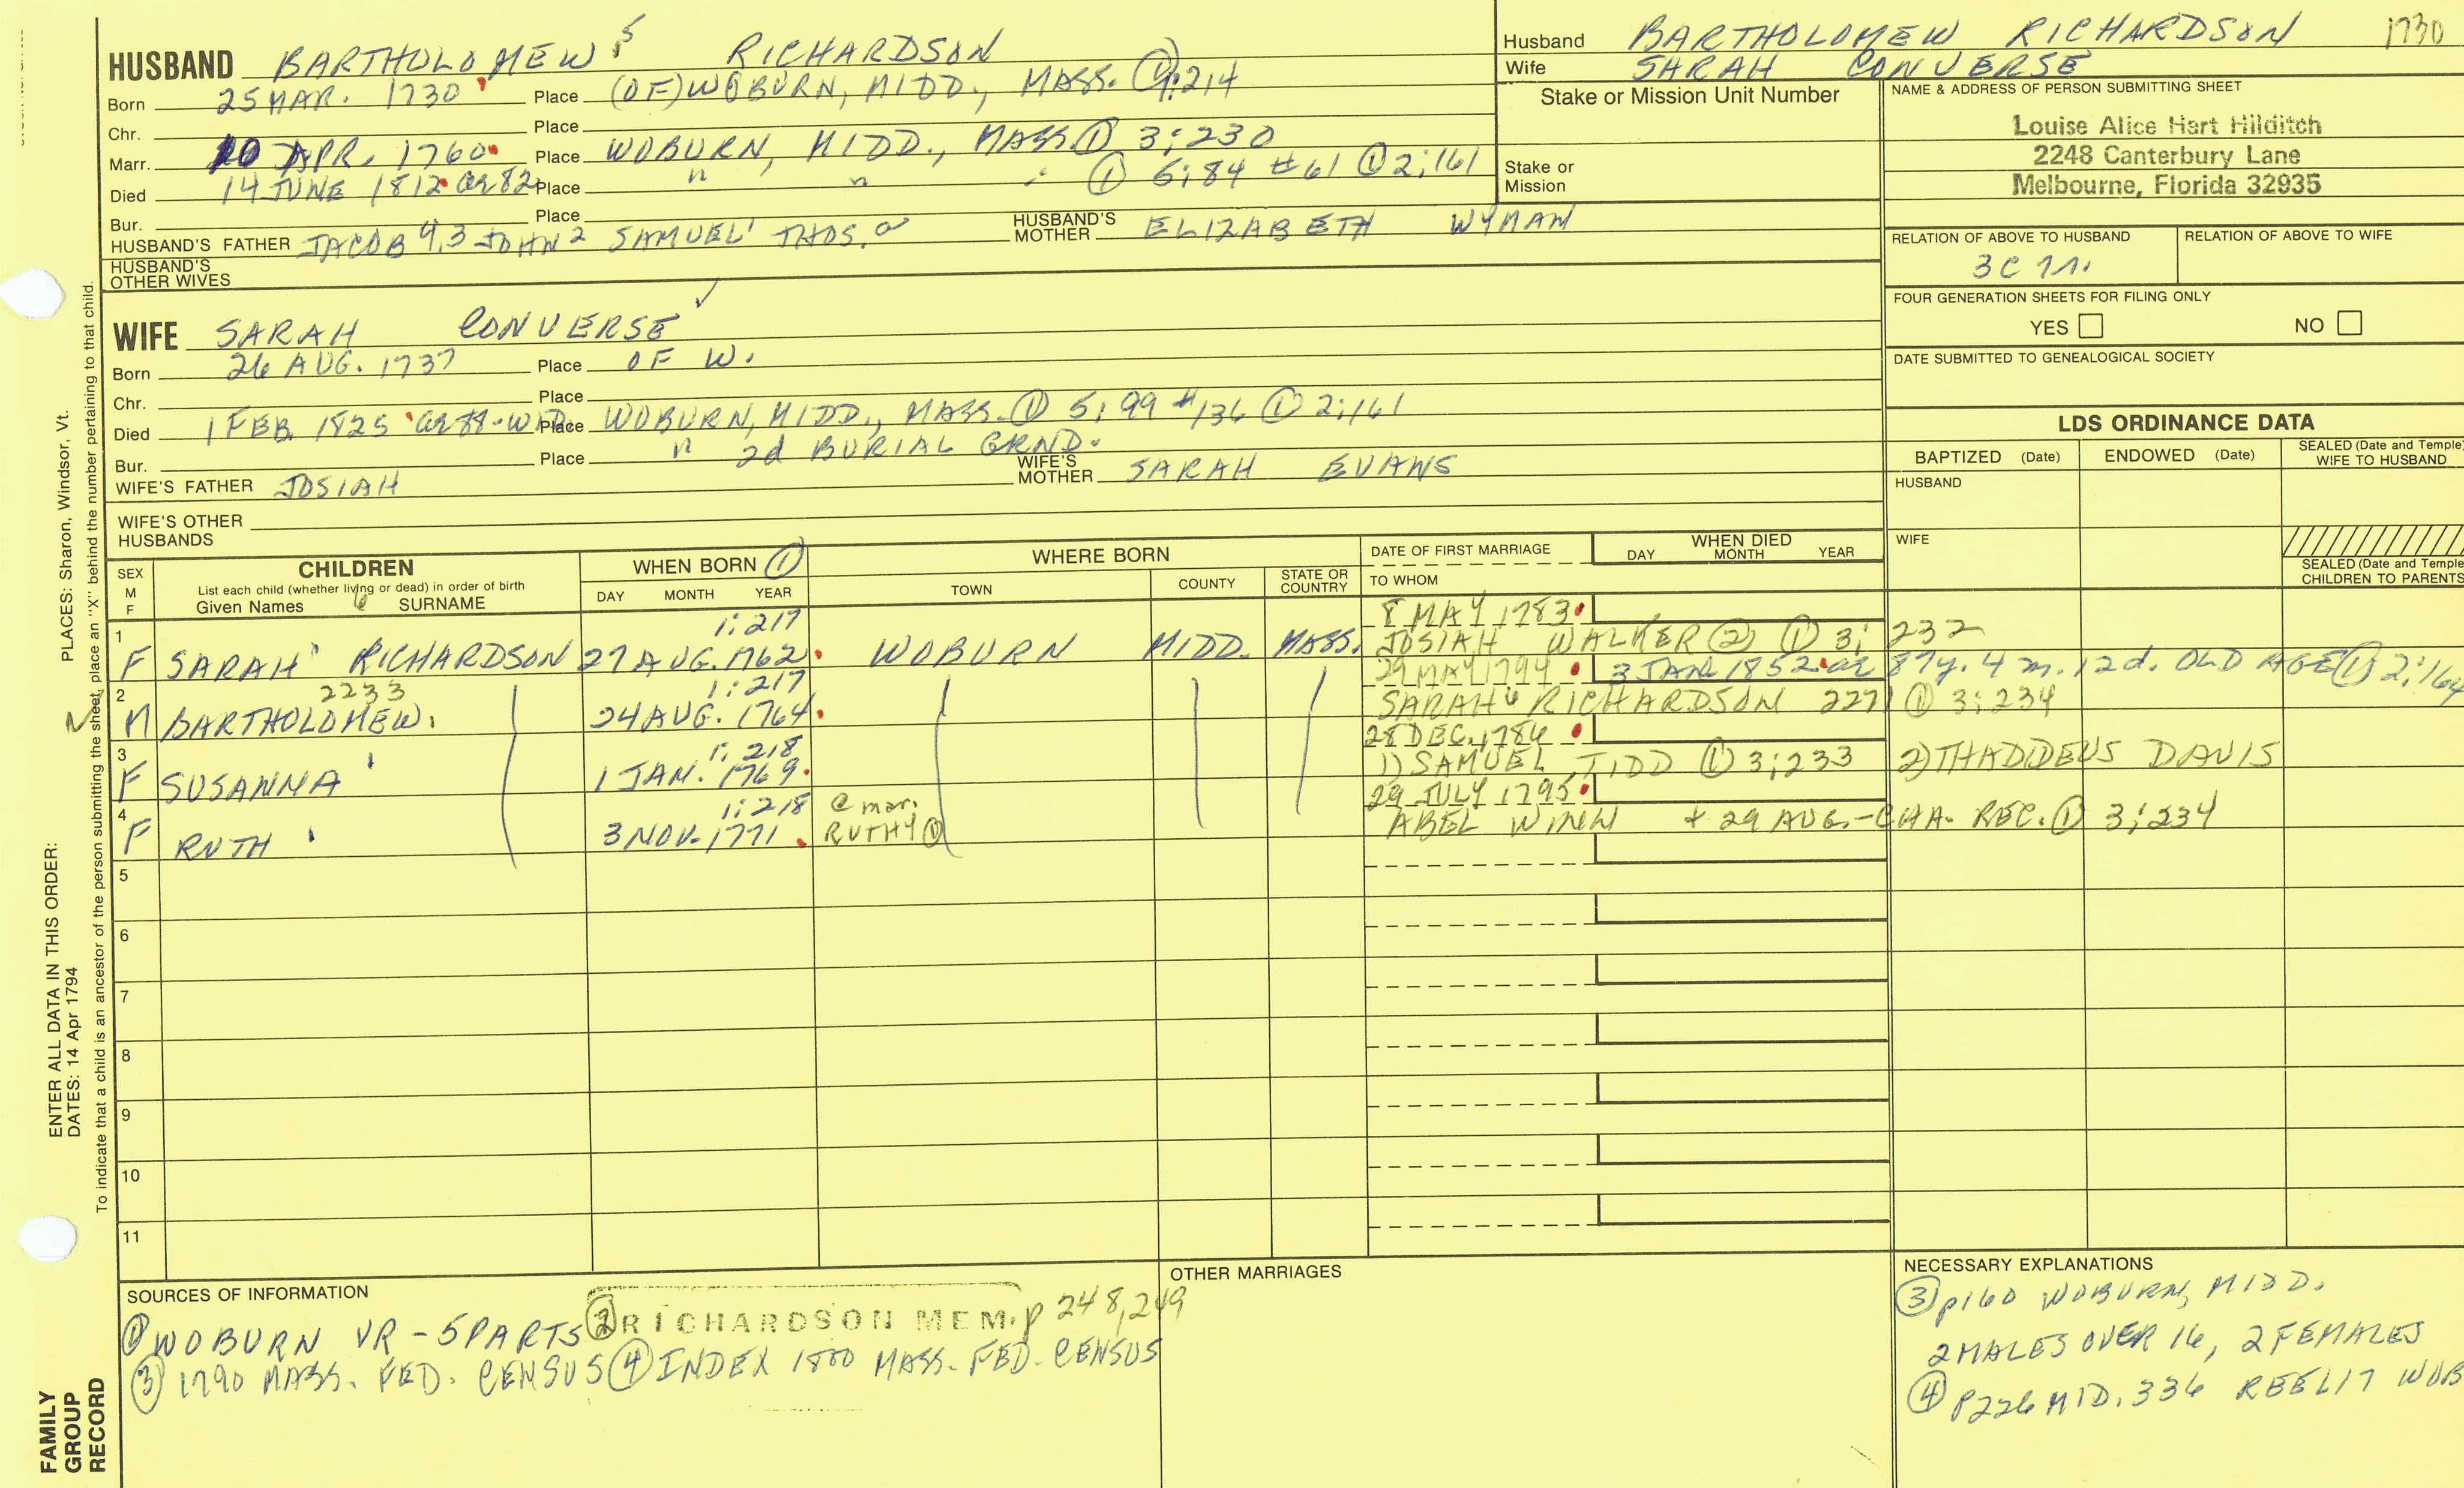 HUSBAND BARTHOLOMEW 5 RICHARDSON
Born 25 MAR. 1730 Place (OF) WOBURN, MIDD., MASS. ① 1:214
Chr. Place
Marr. 10 APR. 1760 Place WOBURN, MIDD., MASS ① 3:230
Died 14 JUNE 1812 ae 82 Place " " " ① 5:84 #61 ① 2:161
Bur. Place
HUSBAND'S FATHER JACOB 4, 3 JOHN 2 SAMUEL 1 THOS. HUSBAND'S MOTHER ELIZABETH WYMAN
HUSBAND'S OTHER WIVES
Husband BARTHOLOMEW RICHARDSON 1730
Wife SARAH CONVERSE
Stake or Mission Unit Number
Stake or Mission
NAME & ADDRESS OF PERSON SUBMITTING SHEET
Louise Alice Hart Hilditch
2248 Canterbury Lane
Melbourne, Florida 32935
RELATION OF ABOVE TO HUSBAND RELATION OF ABOVE TO WIFE
3C
FOUR GENERATION SHEETS FOR FILING ONLY
YES NO
DATE SUBMITTED TO GENEALOGICAL SOCIETY
WIFE SARAH CONVERSE ✓
Born 26 AUG. 1737 Place OF W.
Chr. Place
Died 1 FEB. 1825 ae 88-WID. Place WOBURN, MIDD., MASS. ① 5:99 #136 ① 2:161
Bur. Place " 2d BURIAL GRND.
WIFE'S FATHER JOSIAH WIFE'S MOTHER SARAH EVANS
WIFE'S OTHER HUSBANDS
LDS ORDINANCE DATA
BAPTIZED (Date) ENDOWED (Date) SEALED (Date and Temple) WIFE TO HUSBAND
HUSBAND
WIFE
SEALED (Date and Temple) CHILDREN TO PARENTS
SEX M F
CHILDREN
List each child (whether living or dead) in order of birth
Given Names 6 SURNAME
WHEN BORN ①
DAY MONTH YEAR
WHERE BORN
TOWN COUNTY STATE OR COUNTRY
DATE OF FIRST MARRIAGE
TO WHOM
WHEN DIED
DAY MONTH YEAR
1 1:217 8 MAY 1783
F SARAH RICHARDSON 27 AUG. 1762 WOBURN MIDD. MASS. JOSIAH WALKER ② ① 3: 232
2 2233 1:217 29 MAY 1794 3 JAN. 1852 ae 87y. 4 m. 12 d. OLD AGE ① 2:164
M BARTHOLOMEW 24 AUG. 1764 SARAH 6 RICHARDSON 2271 ① 3:234
3 1:218 28 DEC. 1786
F SUSANNA 1 JAN. 1769 1) SAMUEL TIDD ① 3:233 2) THADDEUS DAVIS
4 1:218 @ mar. 29 JULY 1795
F RUTH 3 NOV. 1771 RUTHY ① ABEL WINN + 29 AUG.-CHA. REC. ① 3:234
5
6
7
8
9
10
11
SOURCES OF INFORMATION
① WOBURN VR - 5 PARTS ② RICHARDSON MEM. p 248, 249
③ 1790 MASS. FED. CENSUS ④ INDEX 1800 MASS. FED. CENSUS
OTHER MARRIAGES
NECESSARY EXPLANATIONS
③ p160 WOBURN, MIDD.
2 MALES OVER 16, 2 FEMALES
④ P226 MID. 336 REEL17 WOB
PLACES: Sharon, Windsor, Vt.
ENTER ALL DATA IN THIS ORDER:
DATES: 14 Apr 1794
To indicate that a child is an ancestor of the person submitting the sheet, place an "X" behind the number pertaining to that child.
FAMILY
GROUP
RECORD